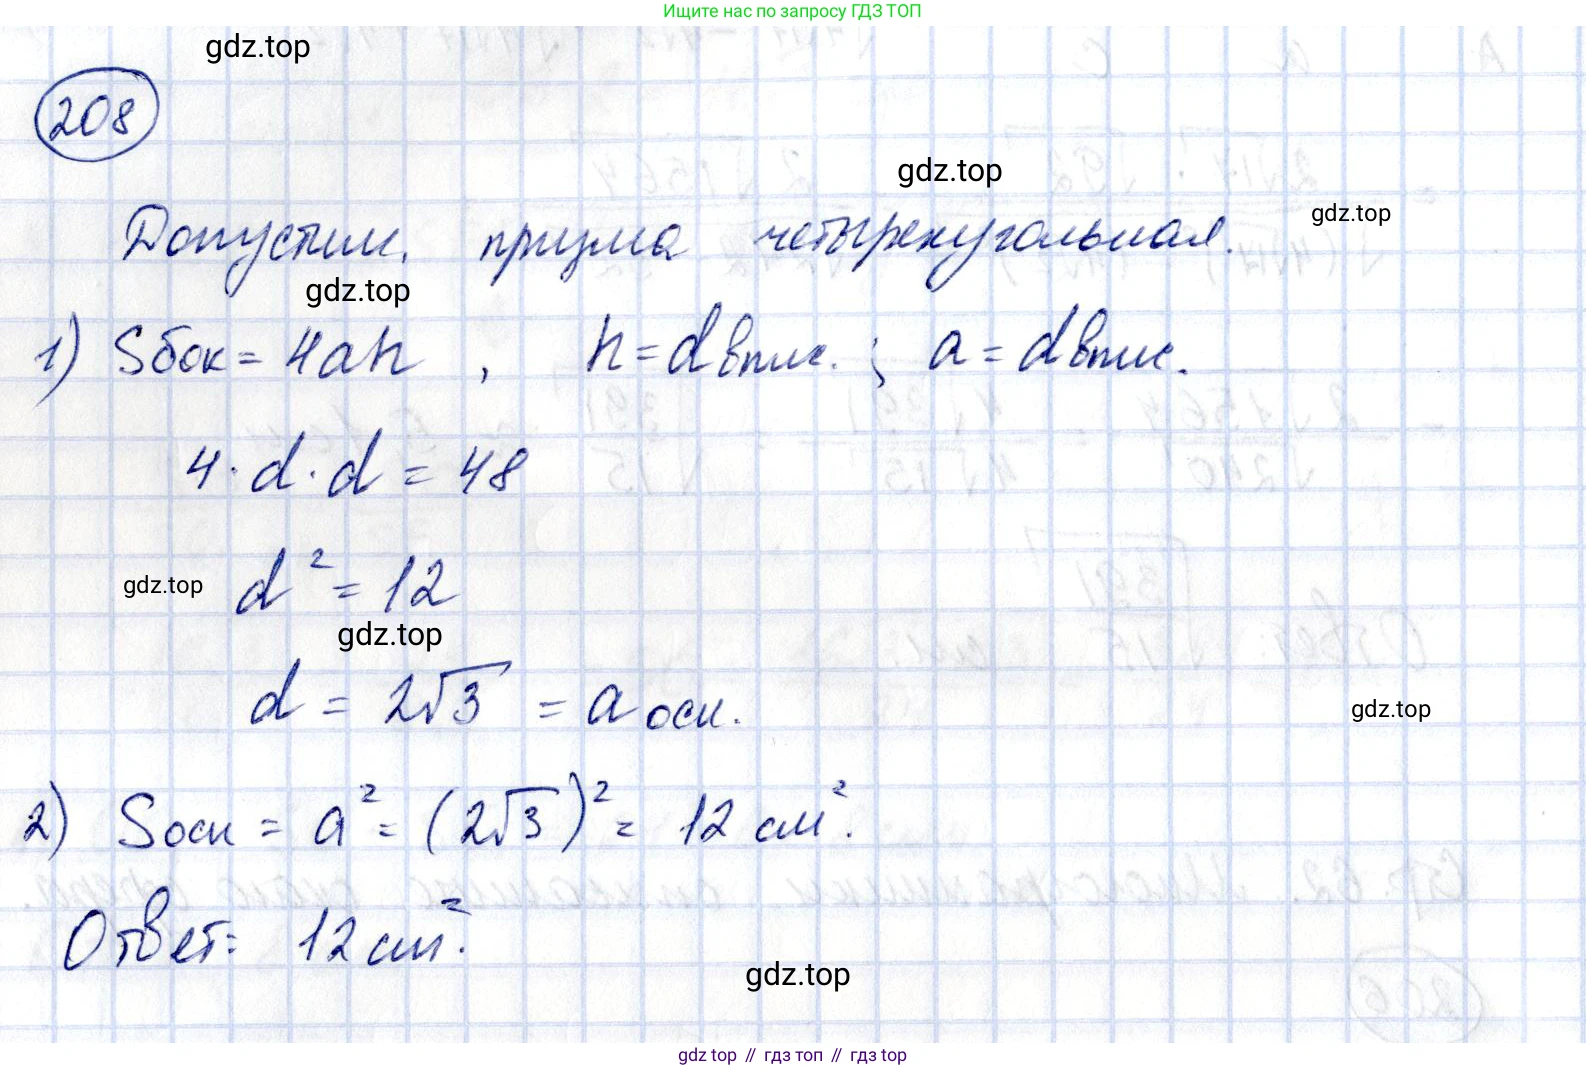 Ищите нас по запросу ГДЗ ТОП
gdz.top
208
gdz.top
gdz.top
Допустим, призма четырехугольная.
gdz.top
1) Sбок = 4ah , h = dвпис. ; a = dвпис.
4·d·d = 48
d² = 12
gdz.top
gdz.top
d = 2√3 = a осн.
gdz.top
2) Sосн = a² = (2√3)² = 12 см².
Ответ: 12 см².
gdz.top
gdz top // гдз топ // гдз top